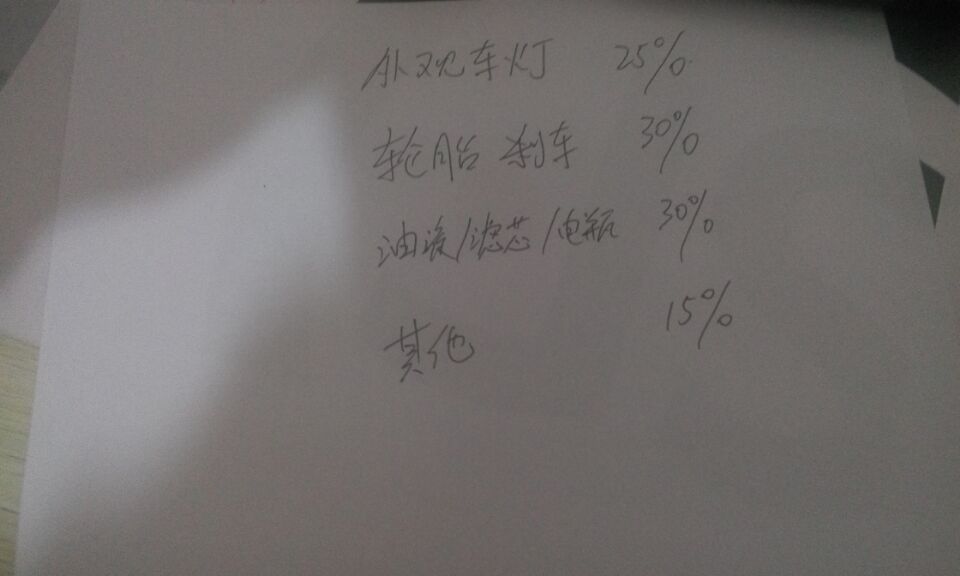 外观车灯 25%
轮胎 刹车 30%
油液/滤芯/电瓶 30%
其他 15%